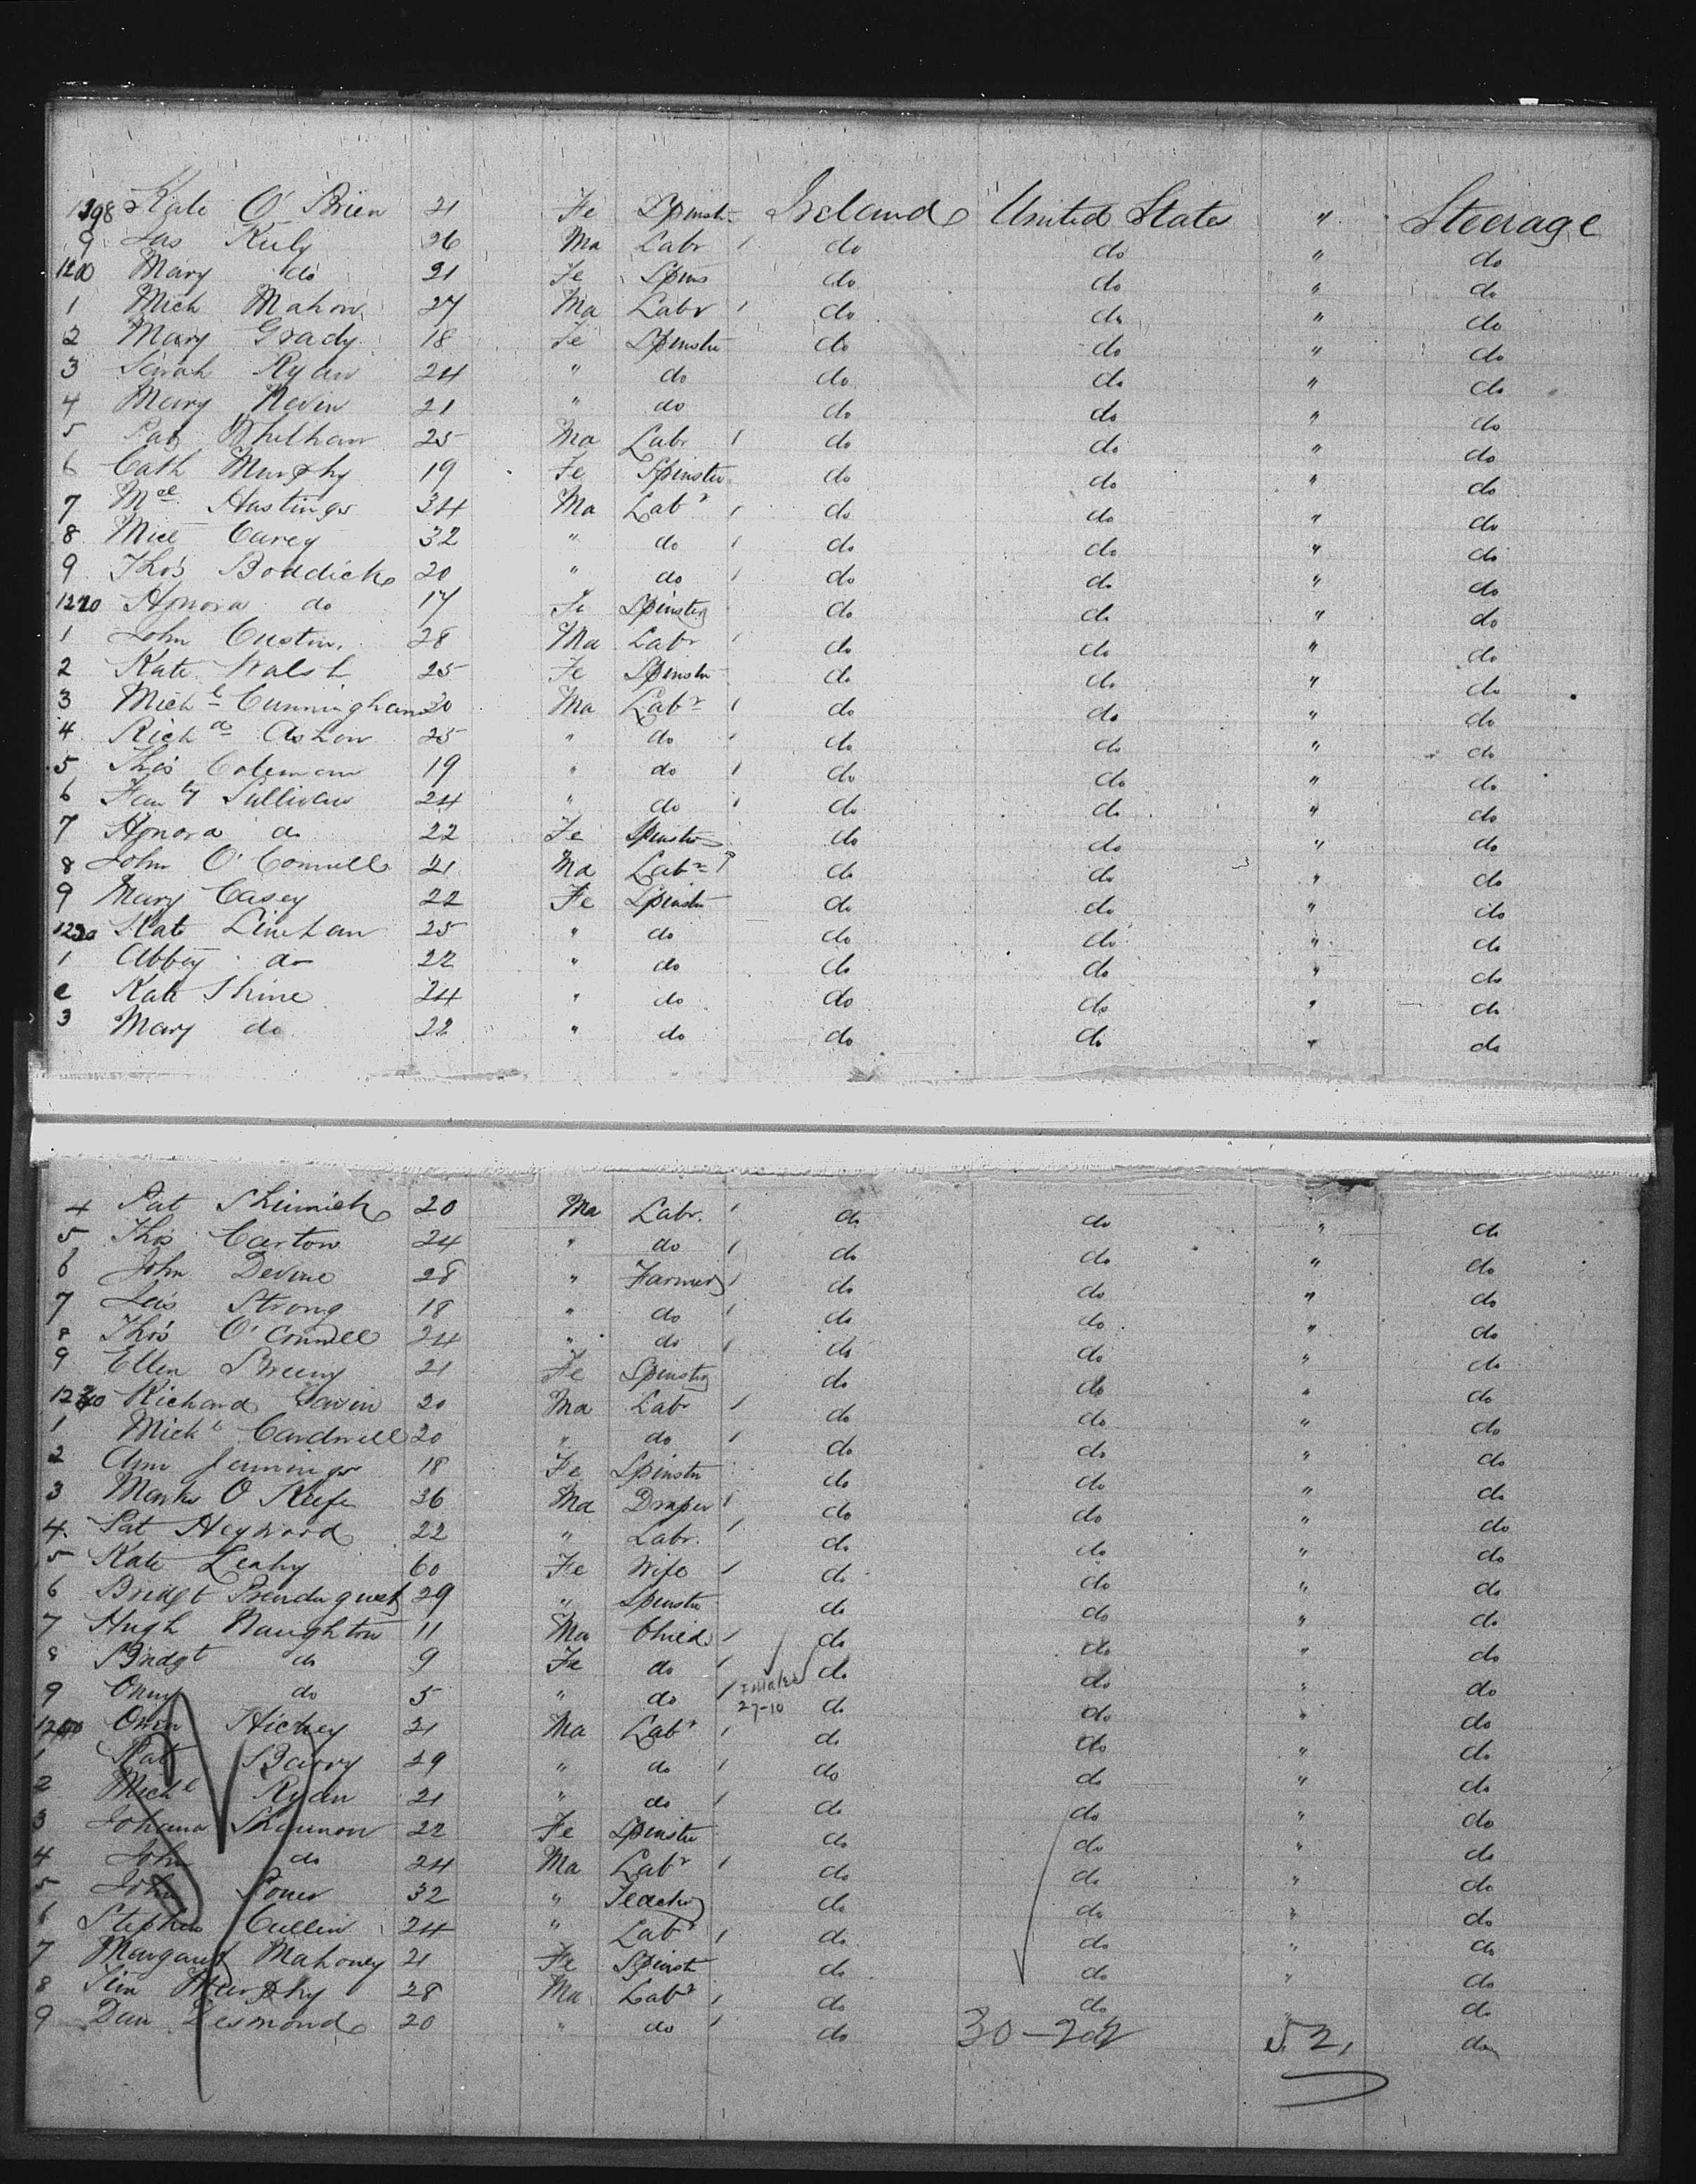 1198 Kate O'Brien 21 Fe Spinstr Ireland United States " Steerage
9 Jas Kiely 26 Ma Labr / do do " do
1200 Mary do 21 Fe Spins do do " do
1 Mich Mahon 27 Ma Labr / do do " do
2 Mary Grady 18 Fe Spinstr do do " do
3 Sarah Ryan 24 " do do do " do
4 Mary Nevin 21 " do do do " do
5 Pat Whelhan 25 Ma Labr / do do " do
6 Cath Murphy 19 Fe Spinster do do " do
7 Ml Hastings 34 Ma Labr / do do " do
8 Mice Carey 32 " do / do do " do
9 Thos Boddick 20 " do / do do " do
1210 Honora do 17 Fe Spinster do do " do
1 John Custin 28 Ma Labr / do do " do
2 Kate Walsh 25 Fe Spinstr do do " do
3 Michl Cunningham 30 Ma Labr / do do " do
4 Richd 25 " do / do do " do
5 Thos Coleman 19 " do / do do " do
6 Sullivan 24 " do / do do " do
7 Honora do 22 Fe Spinster do do " do
8 John O'Connell 21 Ma Labr / do do " do
9 Mary Casey 22 Fe Spinstr do do " do
1220 Kate Linehan 25 " do do do " do
1 Abbey do 22 " do do do " do
2 Kate Shine 24 " do do do " do
3 Mary do 22 " do do do " do
4 Pat 20 Ma Labr. / do do " do
5 Thos Carton 24 " do / do do " do
6 John Devine 28 " Farmer / do do " do
7 Strong 18 " do / do do " do
8 Thos O'Connell 24 " do / do do " do
9 Ellen 21 Fe Spinster do do " do
1230 Richard 20 Ma Labr / do do " do
1 Michl Cardwell 20 " do / do do " do
2 Ann Jennings 18 Fe Spinstr do do " do
3 O Keefe 36 Ma Draper / do do " do
4 Pat Heyword 22 " Labr. / do do " do
5 Kate Leahy 60 Fe Wife / do do " do
6 Bridgt Prendergast 29 " Spinstr do do " do
7 Hugh Naughton 11 Ma Child / do do " do
8 Bridgt do 9 Fe do / do do " do
9 do 5 " do / Females 27-10 do do " do
1240 Owen Hickey 21 Ma Labr / do do " do
1 Pat Barry 29 " do / do do " do
2 Michl Ryan 21 " do / do do " do
3 Johana Shannon 22 Fe Spinstr do do " do
4 John do 24 Ma Labr / do do " do
5 John Power 32 " Teacher do do " do
6 Stephen Cullin 24 " Labr / do do " do
7 Margaret Mahoney 21 Fe Spinstr do do " do
8 Tim Murphy 28 Ma Labr / do do " do
9 Dan Desmond 20 " do / do 30-202 52, do